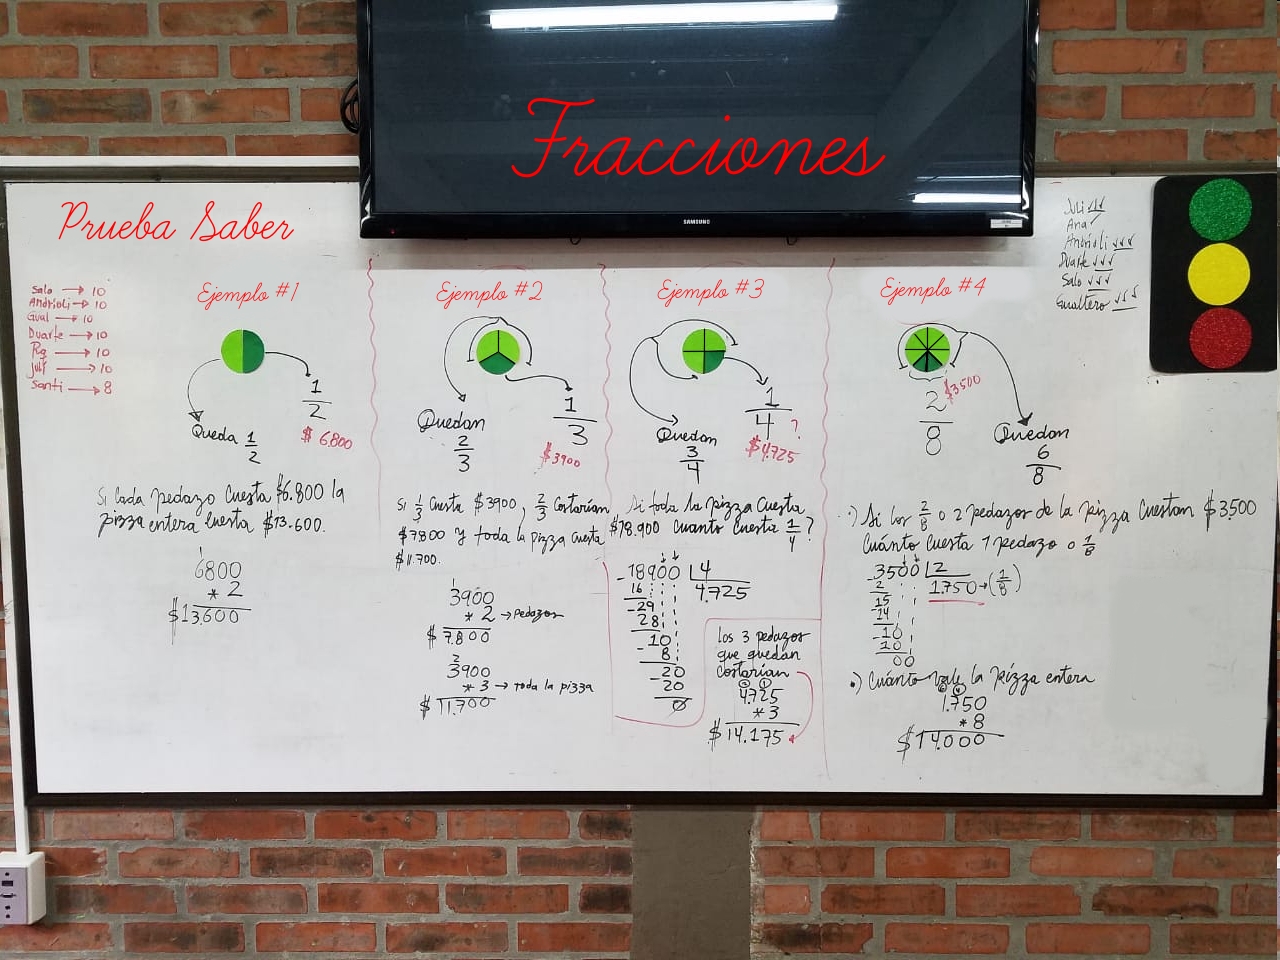 Fracciones
SAMSUNG
Prueba Saber
Salo → 10
Andrioli → 10
Gual → 10
Duarte → 10
→ 10
Juli → 10
Santi → 8
Juli ✓✓
Ana ✓
Andrioli ✓✓✓
Duarte ✓✓✓
Salo ✓✓✓
Gualtero ✓✓✓
Ejemplo #1
1/2
$ 6800
Queda 1/2
Si cada pedazo cuesta $6.800 la
pizza entera cuesta $13.600.
1
6800
* 2
$13,600
Ejemplo #2
Quedan
2/3
1/3
$3900
Si 1/3 cuesta $3900, 2/3 costarían
$7800 y toda la pizza cuesta
$11.700.
1
3900
* 2 → Pedazos
$ 7.800
2
3900
* 3 → toda la pizza
$ 11.700
Ejemplo #3
1/4 ?
$4.725
Quedan
3/4
Si toda la pizza cuesta
$18.900 cuanto cuesta 1/4 ?
-18900 4
16 4.725
-29
28
-10
8
-20
20
0
Los 3 pedazos
que quedan
costarían
2 1
4.725
* 3
$ 14.175
Ejemplo #4
$3500
2/8
Quedan
6/8
·) Si los 2/8 o 2 pedazos de la pizza cuestan $3.500
Cuánto cuesta 1 pedazo o 1/8
-3500 2
2 1.750 → (1/8)
15
-14
-10
10
00
·) Cuánto vale la pizza entera
6 4
1.750
* 8
$14.000